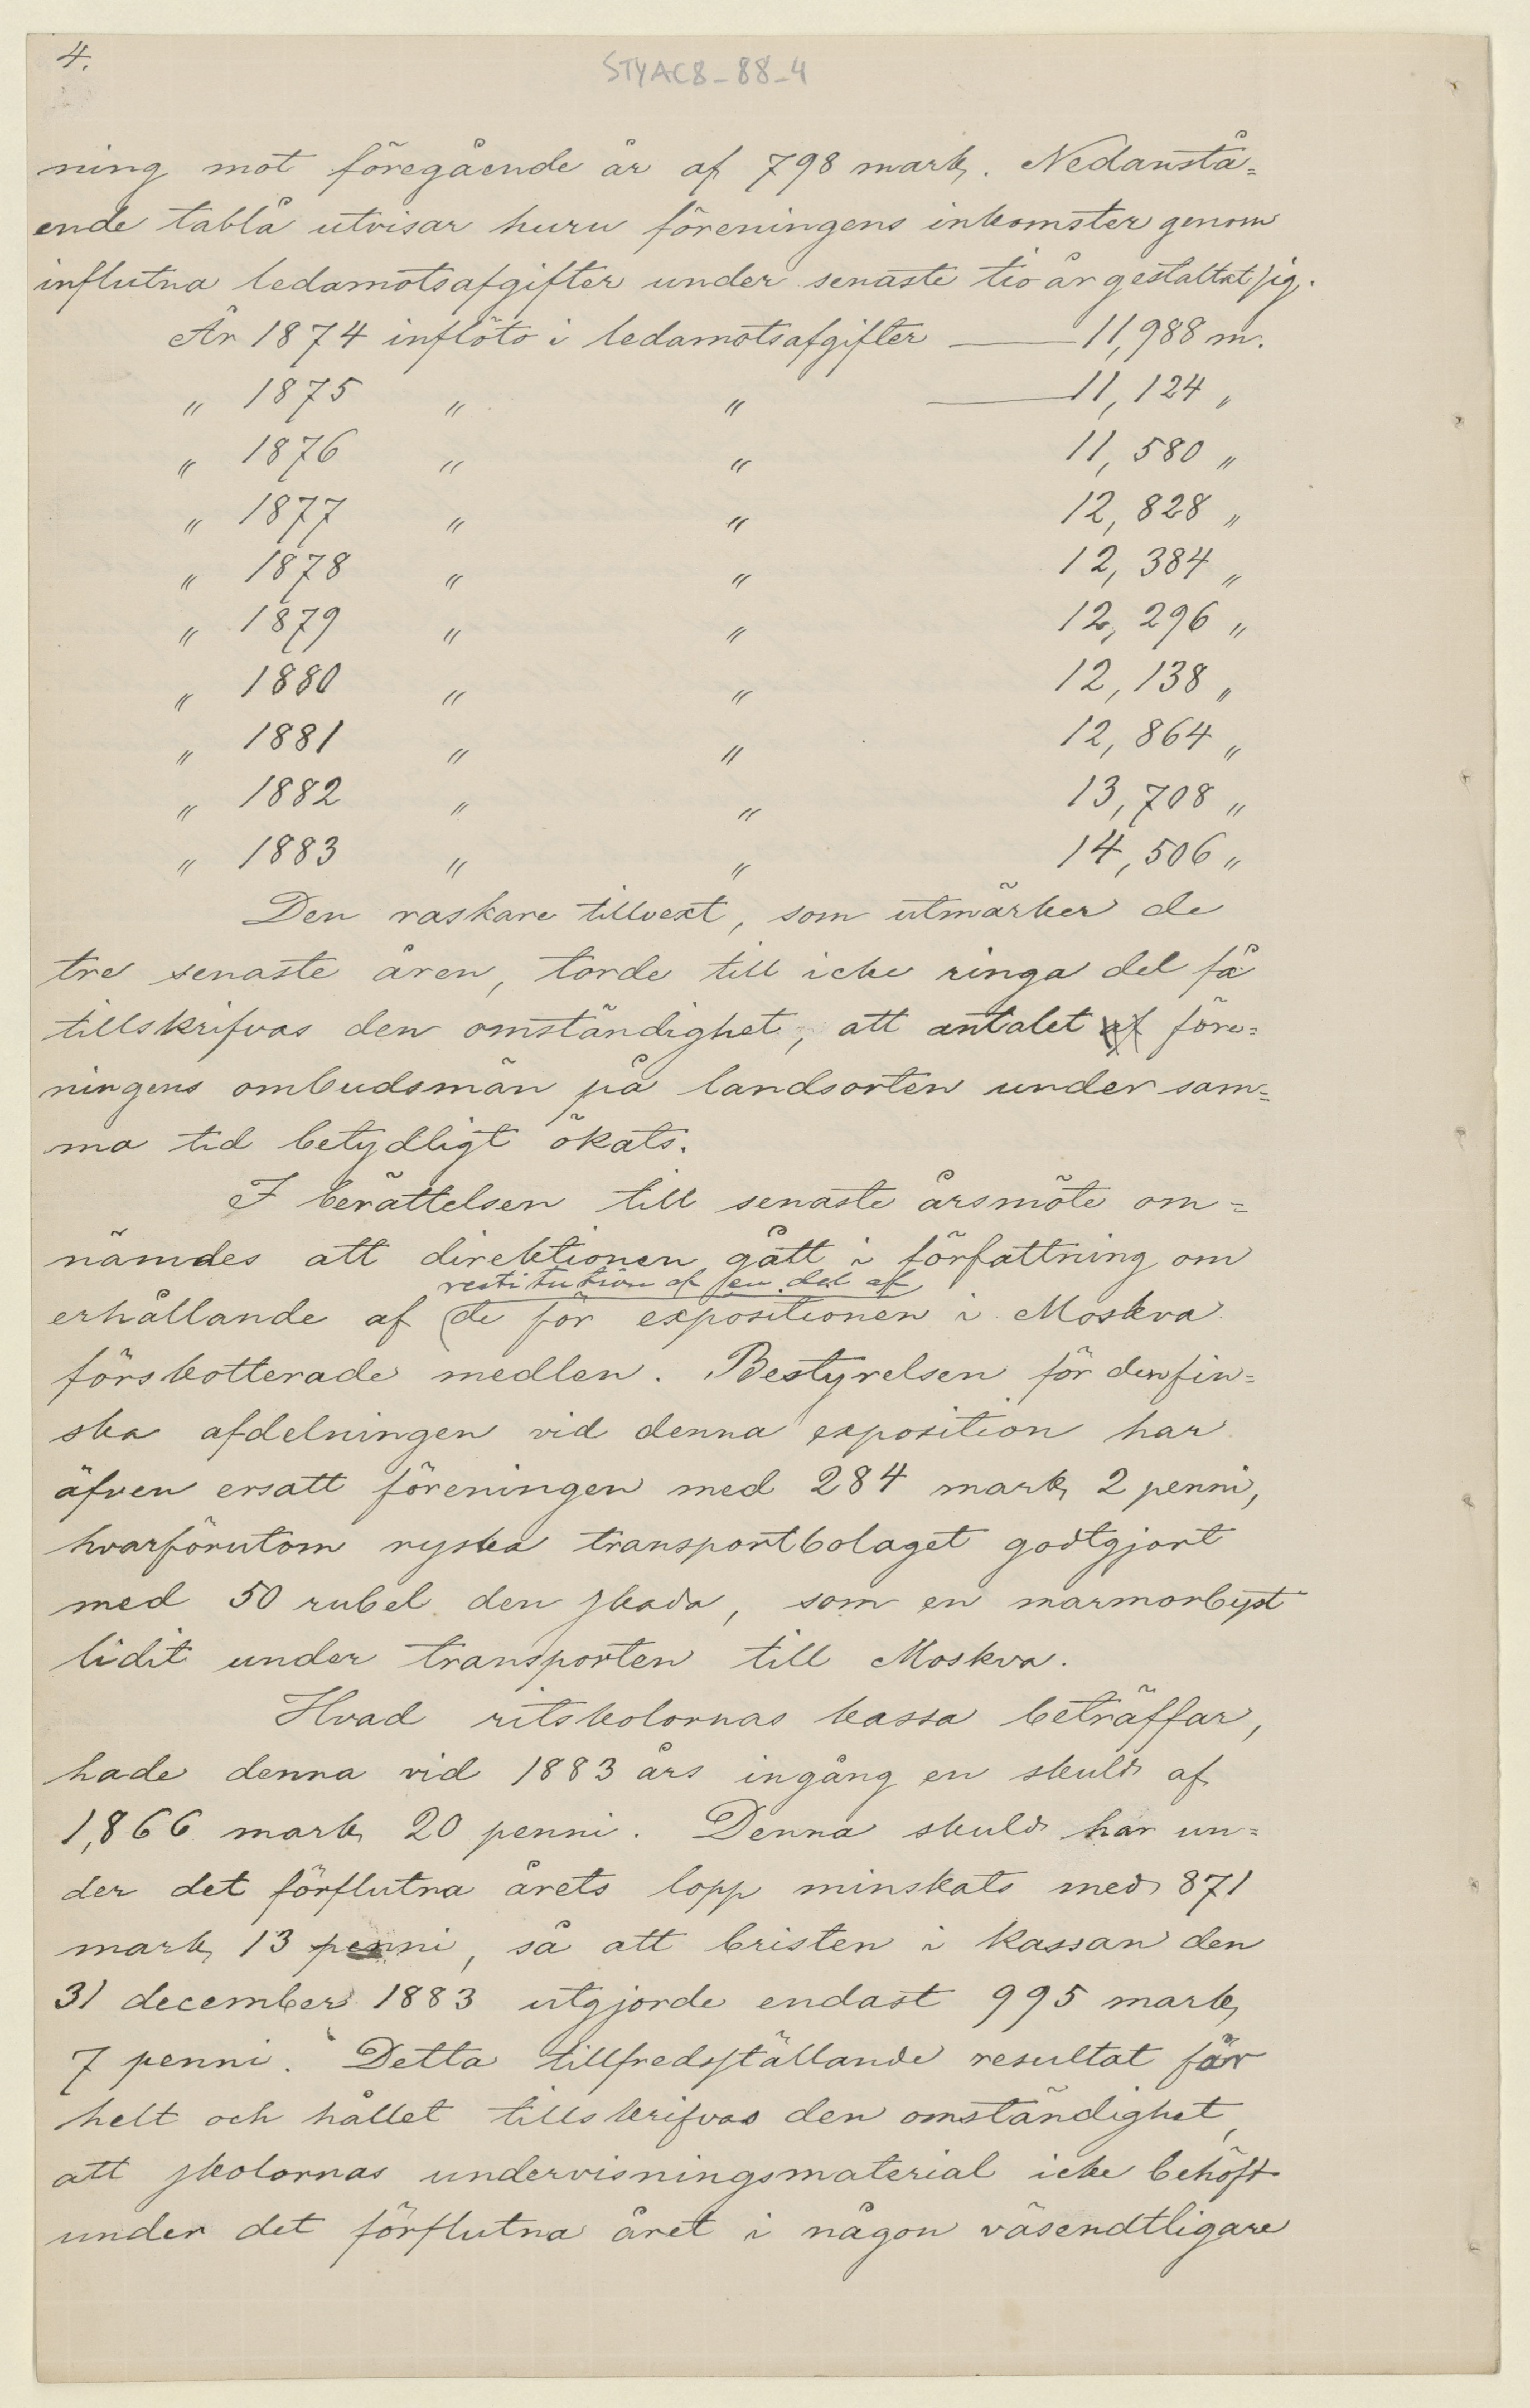 4.
STYAC8_88_4
ning mot föregående år af 798 mark. Nedanstå=
ende tablå utvisar huru föreningens inkomster genom
influtna ledamotsafgifter under senaste tio år gestaltat sig.
År 1874 inflöto i ledamotsafgifter — 11,988 m.
„ 1875 „ „ — 11,124 „
„ 1876 „ „ 11,580 „
„ 1877 „ „ 12,828 „
„ 1878 „ „ 12,384 „
„ 1879 „ „ 12,296 „
„ 1880 „ „ 12,138 „
„ 1881 „ „ 12,864 „
„ 1882 „ „ 13,708 „
„ 1883 „ „ 14,506 „
Den raskare tillvext, som utmärker de
tre senaste åren, torde till icke ringa del få
tillskrifvas den omständighet, att antalet af före=
ningens ombudsmän på landsorten under sam=
ma tid betydligt ökats.
I berättelsen till senaste årsmöte om=
nämdes att direktionen gått i författning om
restitution af en del af
erhållande af (de för expositionen i Moskva
förskotterade medlen. Bestyrelsen för den fin=
ska afdelningen vid denna exposition har
äfven ersatt föreningen med 284 mark 2 penni,
hvarförutom ryska transportbolaget godtgjort
med 50 rubel den skada, som en marmorbyst
lidit under transporten till Moskva.
Hvad ritskolornas kassa beträffar,
hade denna vid 1883 års ingång en skuld af
1,866 mark 20 penni. Denna skuld har un=
der det förflutna årets lopp minskats med 871
mark 13 penni, så att bristen i kassan den
31 december 1883 utgjorde endast 995 mark
7 penni. Detta tillfredsställande resultat får
helt och hållet tillskrifvas den omständighet,
att skolornas undervisningsmaterial icke behöft
under det förflutna året i någon väsendtligare